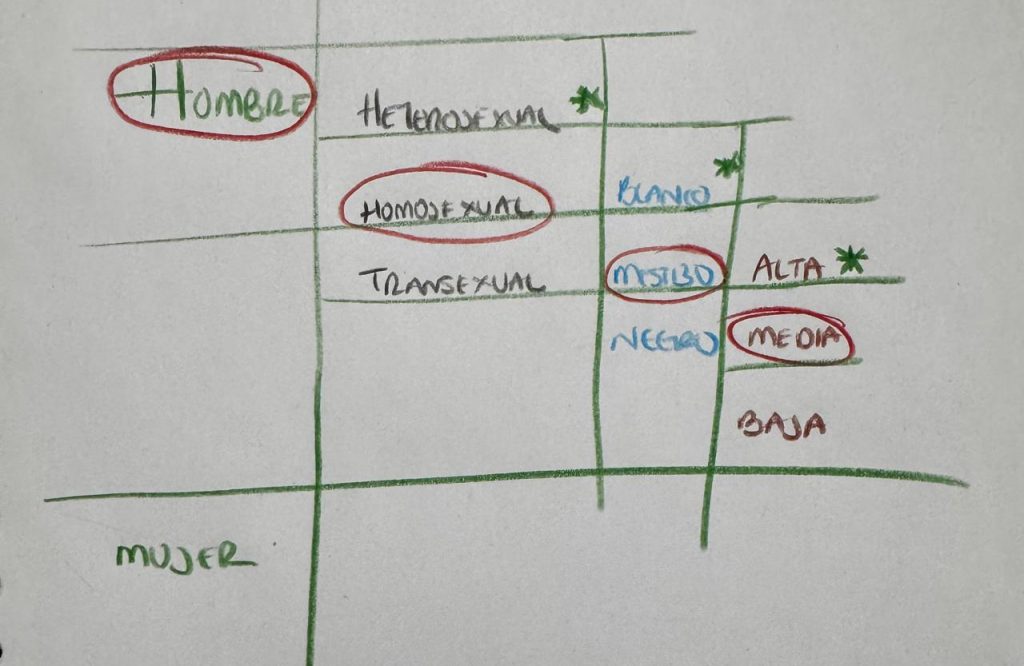 HOMBRE
HETEROSEXUAL *
HOMOSEXUAL
BLANCO *
TRANSEXUAL
MESTIZO
ALTA *
NEGRO
MEDIA
BAJA
MUJER